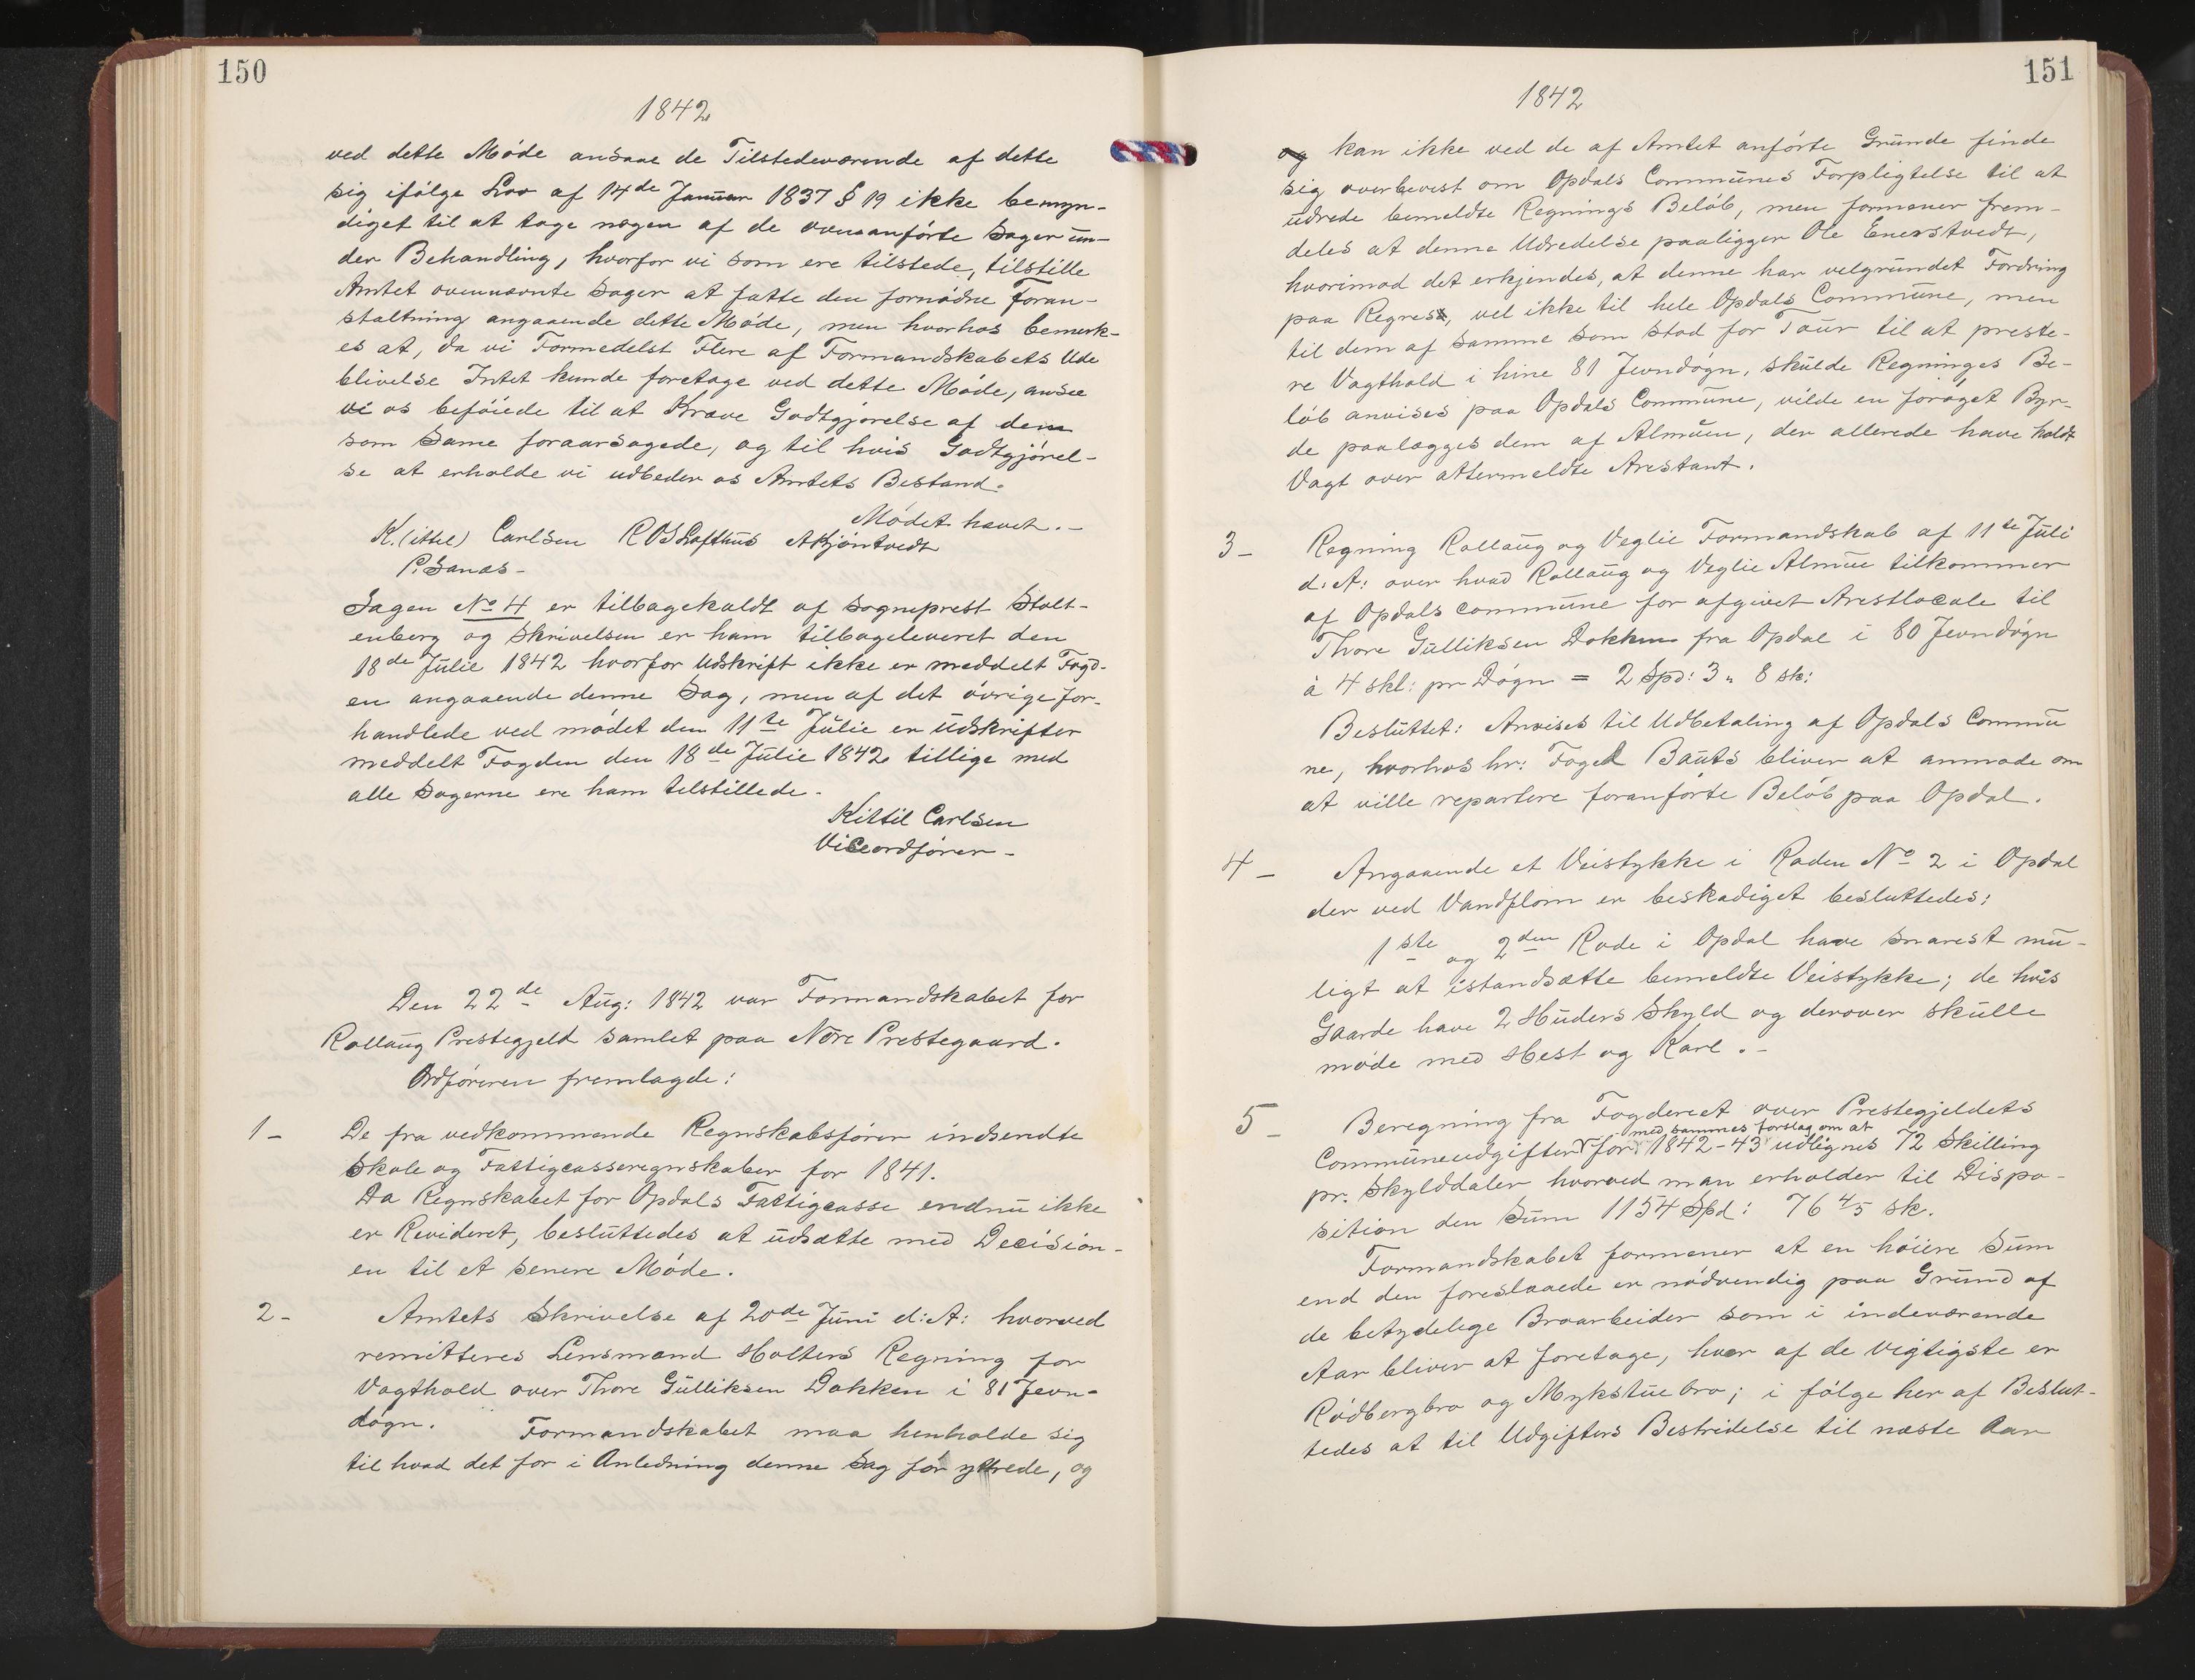 150
1842
ved dette Møde ansaae de Tilstedeværende af dette
sig ifølge Lov af 14de Januar 1837 § 19 ikke bemyn-
diget til at tage nogen af de ovenanførte Sager un-
der Behandling, hvorfor vi som ere tilstede, tilstille
Amtet ovennævnte Sager at fatte den fornødne Foran-
staltning angaaende dette Møde, men hvorhos bemerk-
es at, da vi Formedelst Flere af Formandskabets Ude
blivelse Intet kunde foretage ved dette Møde, ansee
vi os beføiede til at Kræve Godtgjørelse af dem
som Same foraarsagede, og til hvis Godtgjørel-
se at erholde vi udbeder os Amtets Bestand.
Mødet hævet.-
K.(ittil) Carlsen ROSLofthus AKjøntvedt
P.Sanas-
Sagen No 4 er tilbagekaldt af Sogneprest Stolt-
enberg og Skrivelsen er ham tilbageleveret den
18de Julie 1842 hvorfor Udskrift ikke er meddelt Fogd-
en angaaende denne Sag, men af det øvrige for-
handlede ved mødet den 11te Julie er Udskrifter
meddelt Fogden den 18de Julie 1842 tillige med
alle Sagerne ere ham telstillede.
Kittil Carlsen
Viceordfører-
Den 22de Aug: 1842 var Formandskabet for
Rollaug Prestegjeld samlet paa Nore Prestegaard.
Ordføreren fremlagde:
1- De fra vedkommende Regnskabsfører indsendte
Skole og Fattigcasseregnskaber for 1841.
Da Regnskabet for Opdals Fattigcasse endnu ikke
er Revideret, besluttedes at udsætte med Decision-
en til et senere Møde.
2- Amtets Skrivelse af 20de Juni d:A: hvorved
remitteres Lensmand Holters Regning for
Vagthold over Thore Gulliksen Dokken i 81 Jevn-
døgn. Formandskabet maa henholde sig
til hvad det for i Anledning denne Sag før yttrede, og
151
1842
og kan ikke ved de af Amtet anførte Grunde finde
sig overbevist om Opdals Communes Forpligtelse til at
udrede bemeldte Regnings Beløb, men formener frem-
deles at denne Udredelse paaligger Ole Enerstvedt,
hvorimod det erkjendes, at denne har velgrundet Fordring
paa Regress, vel ikke til hele Opdals Commune, men
til dem af samme som stod for Tour til at preste-
re Vagthold i hine 81 Jevndøgn, skulde Regninges Be-
løb anvises paa Opdals Commune, vilde en forøget Byr-
de paalægges dem af Almuen, der allerede have holdt
Vagt over attermeldte Arestant.
3- Regning Rollaug og Veglie Formandskab af 11te Juli
d:A: over hvad Rollaug og Veglie Almue tilkommer
af Opdals commune for afgivet Arestlocale til
Thore Gulliksen Dokken fra Opdal i 80 Jevndøgn
à 4 skl: pr Døgn = 2 Spd: 3 " 8 sk:
Besluttet: Anvises til Udbetaling af Opdals Commu
ne, hvorhos hr: Foged Bauts bliver at anmode om
at ville repartere foranførte Beløb paa Opdal.
4- Angaaende et Veistykke i Roden No 2 i Opdal
der ved Vandflom er beskadiget besluttedes:
1ste og 2den Rode i Opdal have snarest mu-
ligt at istandsætte bemeldte Veistykke; de hvis
Gaarde have 2 Huders Skyld og derover skulle
møde med Hest og Karl.-
5- Beregning fra Fogderiet over Prestegjeldets
med sammes forslag om at
Communeudgifter for 1842-43 udlignes 72 Skilling
pr. Skylddaler hvorved man erholder til Dispo-
sition den Sum 1154 Spd: 76 4/5 sk.
Formandskabet formener at en høiere Sum
end den foreslaaede er nødvendig paa Grund af
de betydelige Broarbeider som i indeværende
Aar bliver at foretage, hvor af de vigtigste er
Rødbergbro og Mykstuebro; i følge her af Beslut-
tedes at til Udgifters Bestridelse til næste Aar